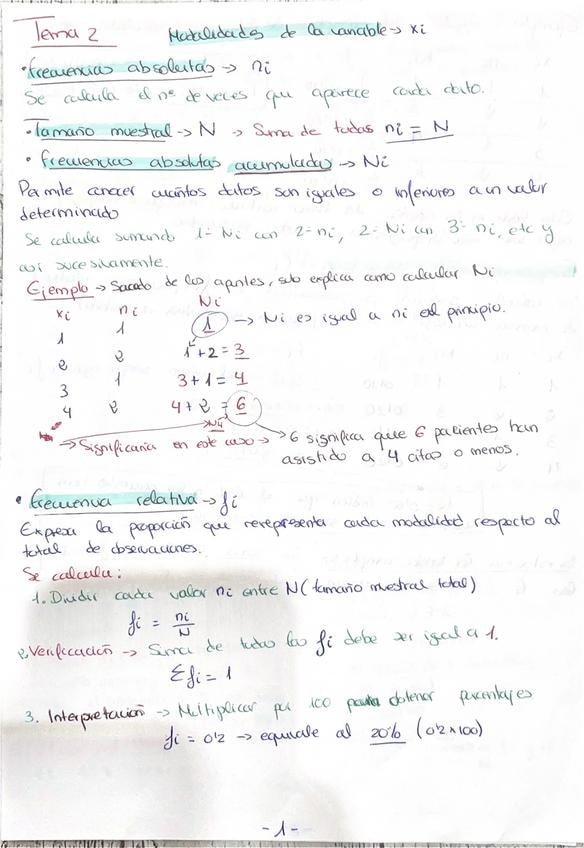 Tema 2 Modalidades de la variable → xi
• Frecuencias absolutas → ni
Se calcula el nº de veces que aparece cada dato.
• Tamaño muestral → N → Suma de todas ni = N
• Frecuencias absolutas acumuladas → Ni
Permite conocer cuántos datos son iguales o inferiores a un valor
determinado
Se calcula sumando 1º Ni con 2º ni, 2º Ni con 3º ni, etc y
así sucesivamente.
Ejemplo → Sacado de los apuntes, solo explica como calcular Ni
xi ni Ni
1 1 1 → Ni es igual a ni al principio.
2 2 1+2 = 3
3 1 3+1 = 4
4 2 4+2 = 6
N4
→ Significaría en este caso → 6 significa que 6 pacientes han
asistido a 4 citas o menos.
• Frecuencia relativa → fi
Expresa la proporción que rerepresenta cada modalidad respecto al
total de observaciones.
Se calcula:
1. Dividir cada valor ni entre N (tamaño muestral total)
fi = ni/N
2. Verificación → Suma de todas las fi debe ser igual a 1.
Σfi = 1
3. Interpretación → Multiplicar por 100 para obtener porcentajes
fi = 0'2 → equivale al 20% (0'2 x 100)
-1-